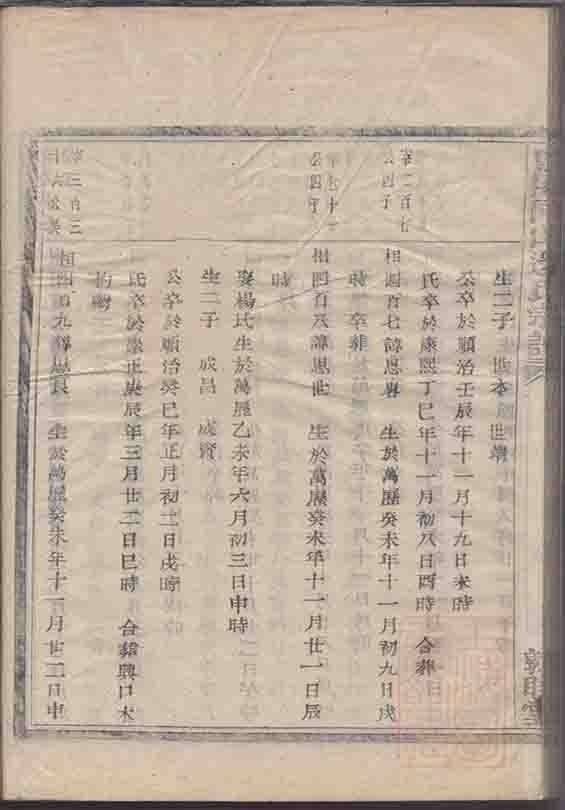 生二子 世本 世靖
公卒於順治壬辰年十一月十九日未時
氏卒於康熙丁巳年十一月初八日酉時 合葬
華二百七
公四子
相四百七諱思 生於萬曆癸未年十一月初九日戌
時 卒葬
公四子
相四百八諱思世 生於萬曆癸未年十一月廿一日辰
時
娶楊氏生於萬曆乙未年六月初三日申時
生二子 成昌 成賢
公卒於順治癸巳年正月初二日戌時
氏卒於崇正庚辰年三月廿二日巳時 合葬興口木
相四百九諱思良 生於萬曆癸未年十一月廿三日申
敦睦堂